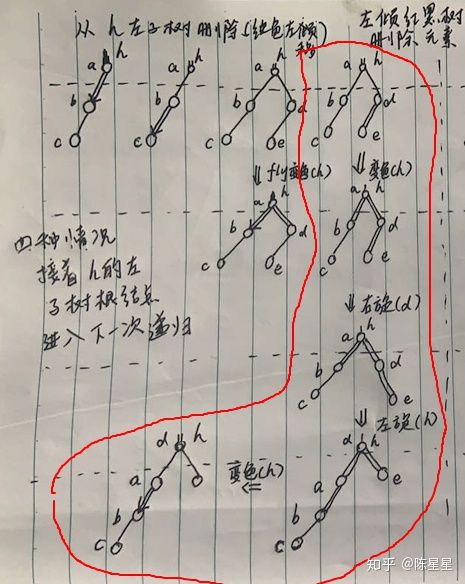 从 h 左子树删除(红色左倾移)
左倾红黑树
删除元素
a h
b
c
a h
b
c
a h
b d
c e
a h
b d
c e
⇓ fly变色(h)
⇓ 变色(h)
a h
b d
c e
a h
b d
c e
四种情况
接着 h 的左
子树根结点
进入下一次递归
⇓ 右旋(d)
a h
b d
c e
⇓ 左旋(h)
d h
a
b
c
变色(h)
⇐
d h
a e
b
c
知乎 @陈星星